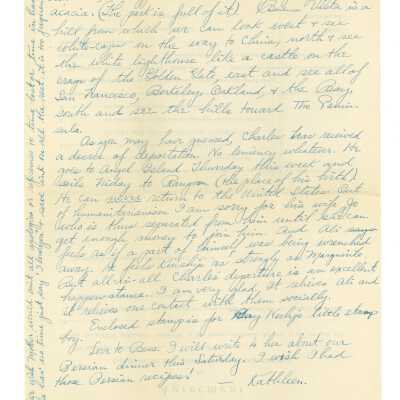 acacia. (The park is full of it) Buena Vista is a
hill from which we can look west & see
white-caps on the way to China, north & see
the white lighthouse like a castle on the
crags of the Golden Gate, east and see all of
San Francisco, Berkeley, Oakland, & the Bay,
south and see the hills toward The Penin-
sula.
As you may have guessed, Charles has received
a decree of deportation. No leniency whatever. He
goes to Angel Island Thursday this week and
sails Friday to Rangoon (the place of his birth)
He can never return to the United States. Out
of humanitarianism I am sorry for his wife Jo
who is thus separated from him until she can
get enough money to join him. And Ali says
feels as if a part of himself was being wrenched
away. He feels kinship as strongly as Marguerite.
But all-in-all Charles' departure is an excellent
happenstance. I am very glad. It relieves Ali and
it relieves one contact with them socially.
Enclosed stamps for little stamp
boy.
Love to Bess. I will write to her about our
Persian dinner this Saturday. I wish I had
those Persian recipes!
— Kathleen.